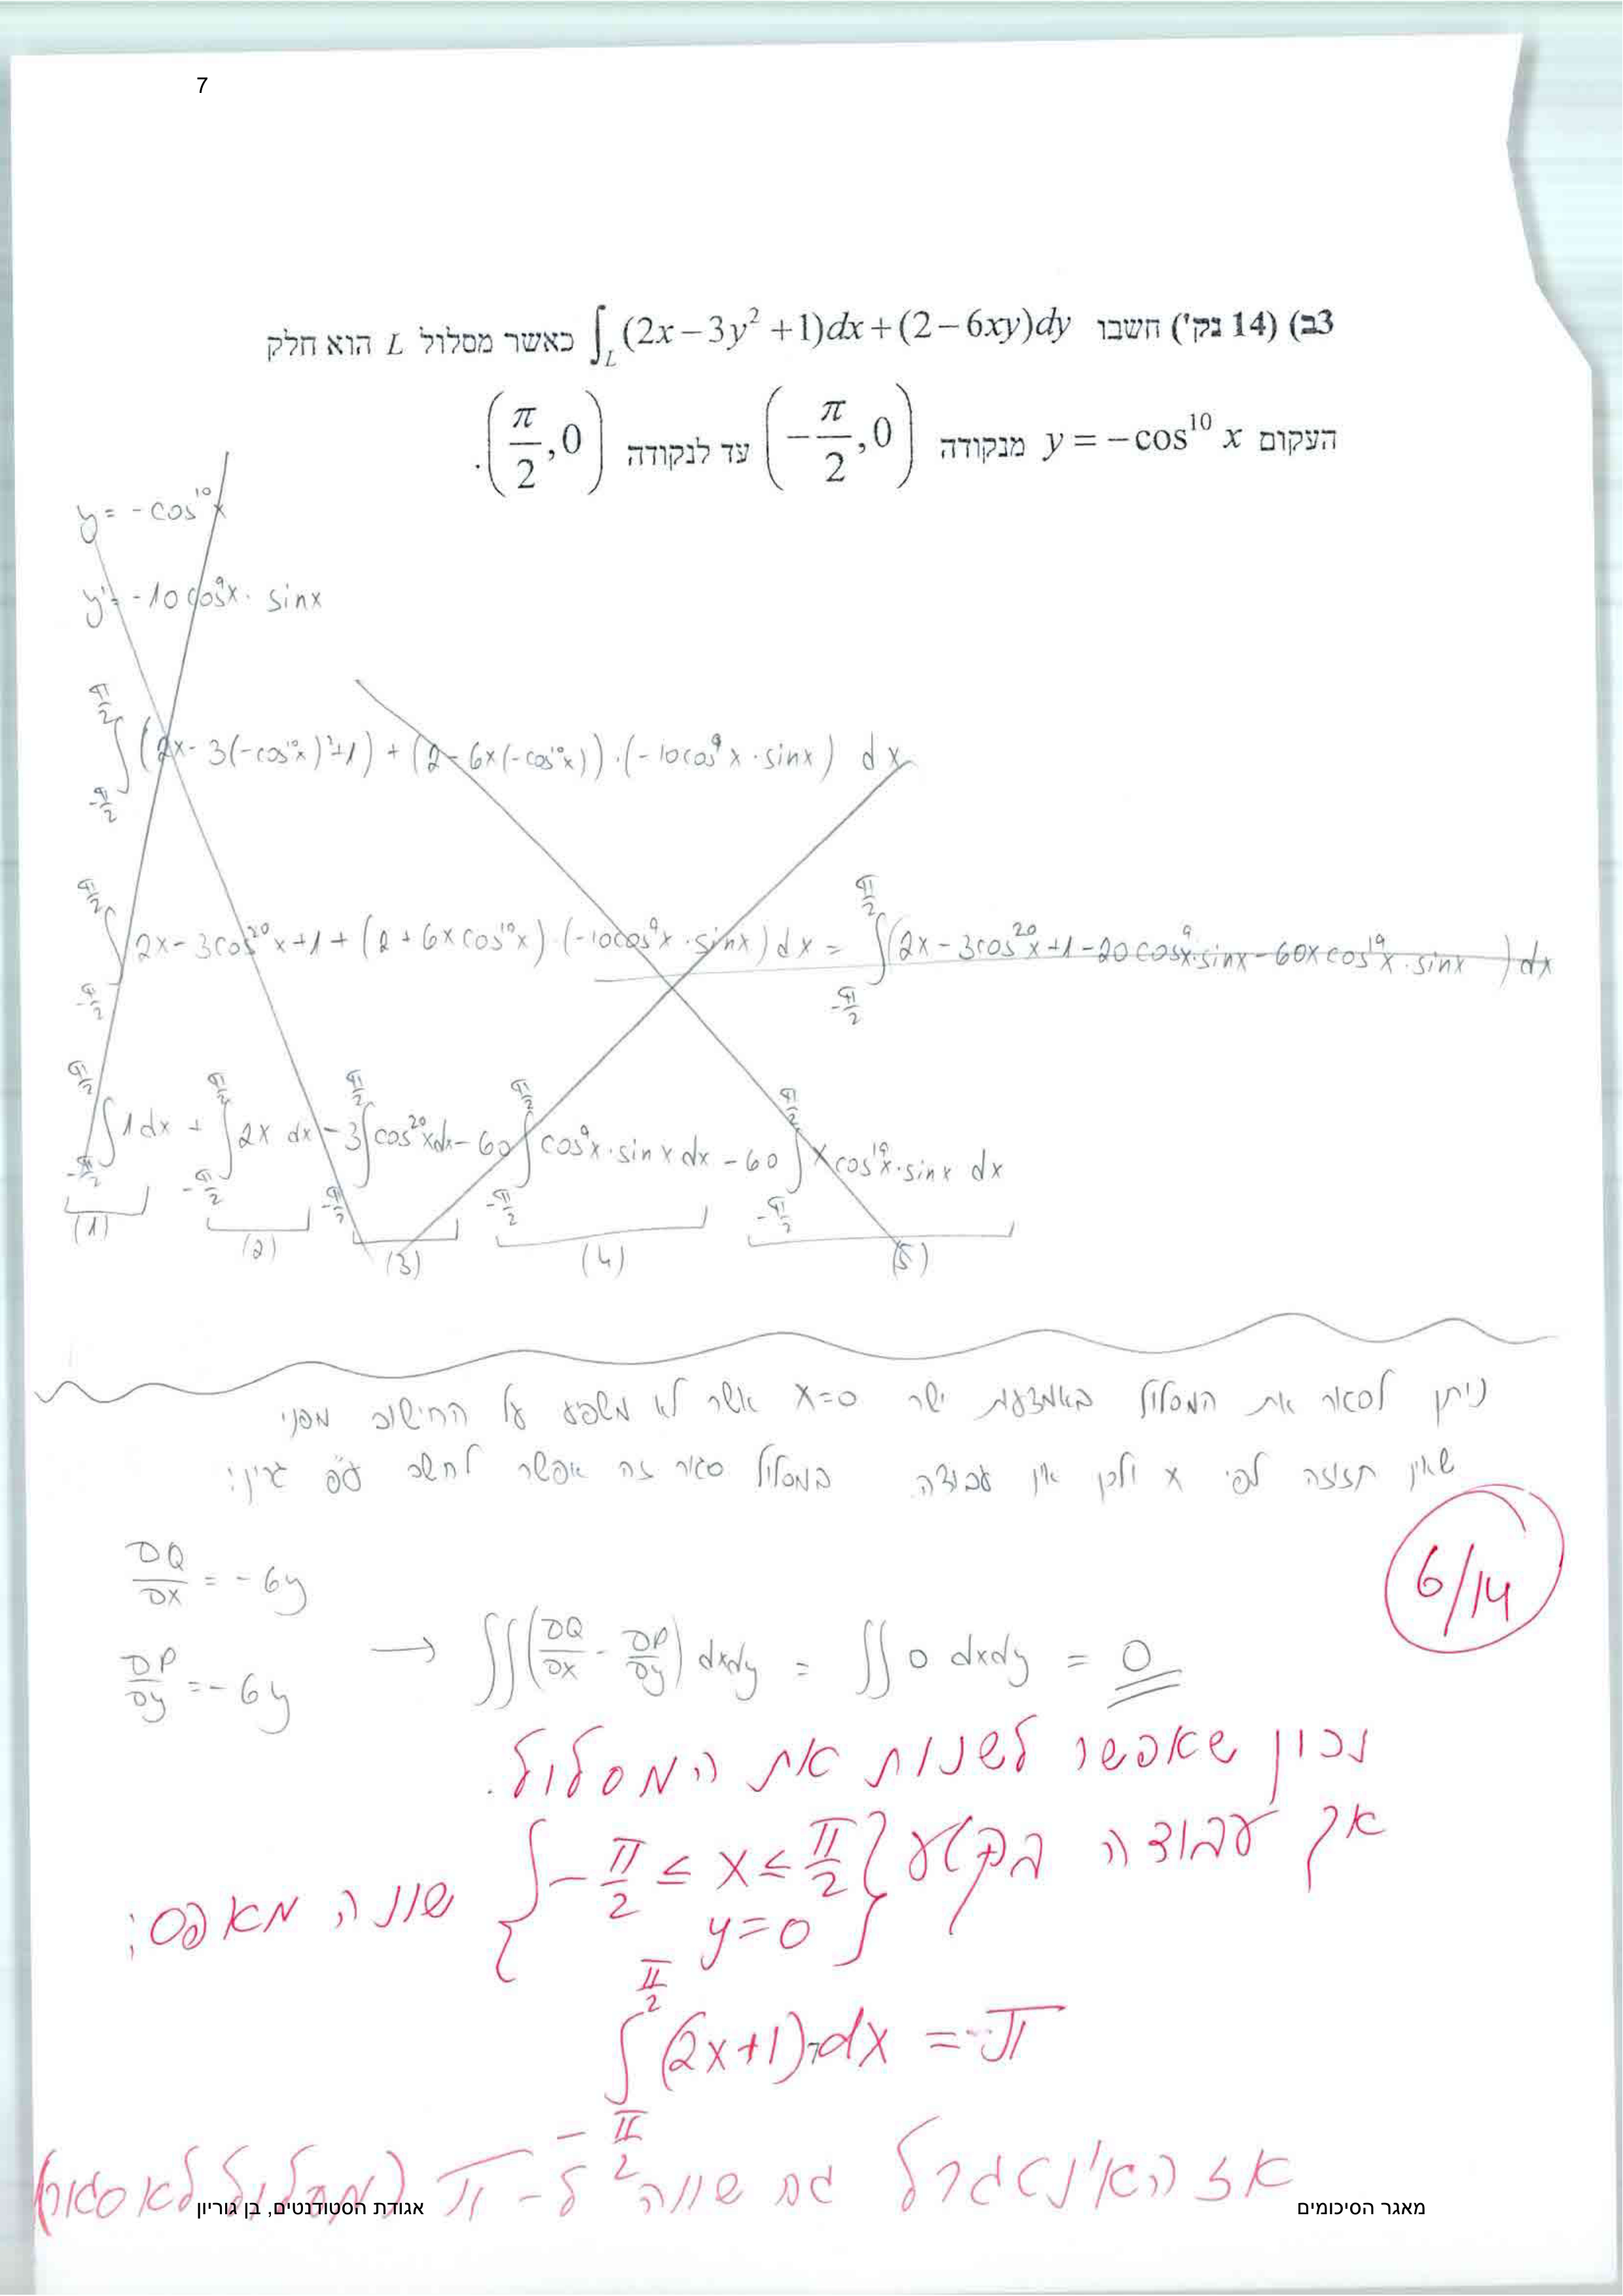 7
3ב) (14 נק') חשבו ∫_L (2x − 3y² + 1)dx + (2 − 6xy)dy כאשר מסלול L הוא חלק
העקום y = −cos¹⁰ x מנקודה (−π/2, 0) עד לנקודה (π/2, 0).
y = −cos¹⁰x
y' = −10cos⁹x · sinx
∫_{−π/2}^{π/2} (2x − 3(−cos¹⁰x)² + 1) + (2 − 6x(−cos¹⁰x)) · (−10cos⁹x · sinx) dx
∫_{−π/2}^{π/2} 2x − 3cos²⁰x + 1 + (2 + 6xcos¹⁰x) · (−10cos⁹x · sinx) dx = ∫_{−π/2}^{π/2} (2x − 3cos²⁰x + 1 − 20cos⁹x · sinx − 60xcos¹⁹x · sinx) dx
∫_{−π/2}^{π/2} 1dx + ∫_{−π/2}^{π/2} 2x dx − 3∫_{−π/2}^{π/2} cos²⁰x dx − 60∫_{−π/2}^{π/2} cos⁹x · sinx dx − 60∫_{−π/2}^{π/2} x cos¹⁹x · sinx dx
(1) (2) (3) (4) (5)
ניתן לסגור את המסלול באמצעות ישר x=0 אשר לא משפיע על החישוב מפני
שאין תזוזה לפי x ולכן אין עבודה. במסלול סגור זה אפשר לחשב ע"פ גרין:
∂Q/∂x = −6y
∂P/∂y = −6y → ∬(∂Q/∂x − ∂P/∂y) dxdy = ∬ 0 dxdy = 0
6/14
נכון שאפשר לשנות את המסלול.
אך עבודה בקטע {−π/2 ≤ x ≤ π/2, y=0} שונה מאפס:
∫_{−π/2}^{π/2} (2x+1) dx = π
אז האינטגרל גם שווה ל-π (מסלול לא סגור)
7
מאגר הסיכומים
אגודת הסטודנטים, בן גוריון